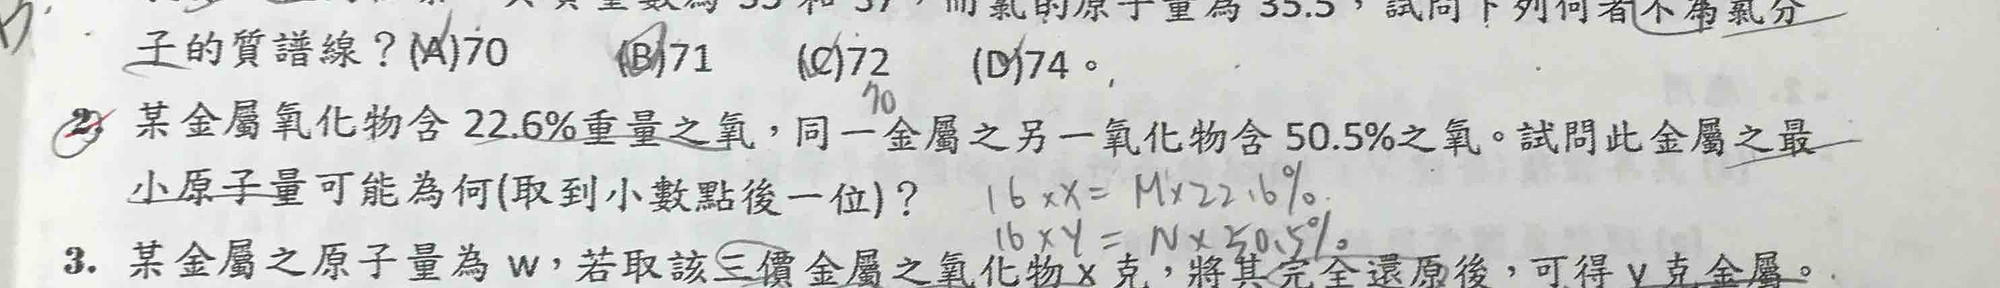 數為 35 和 37，而氯的原子量為 35.5，試問下列何者不為氯分
子的質譜線？(A)70 (B)71 (C)72 (D)74。
70
2. 某金屬氧化物含 22.6%重量之氧，同一金屬之另一氧化物含 50.5%之氧。試問此金屬之最
小原子量可能為何(取到小數點後一位)？ 16 × X = M × 22.6%.
16 × Y = N × 50.5%
3. 某金屬之原子量為 w，若取該三價金屬之氧化物 x 克，將其完全還原後，可得 y 克金屬。